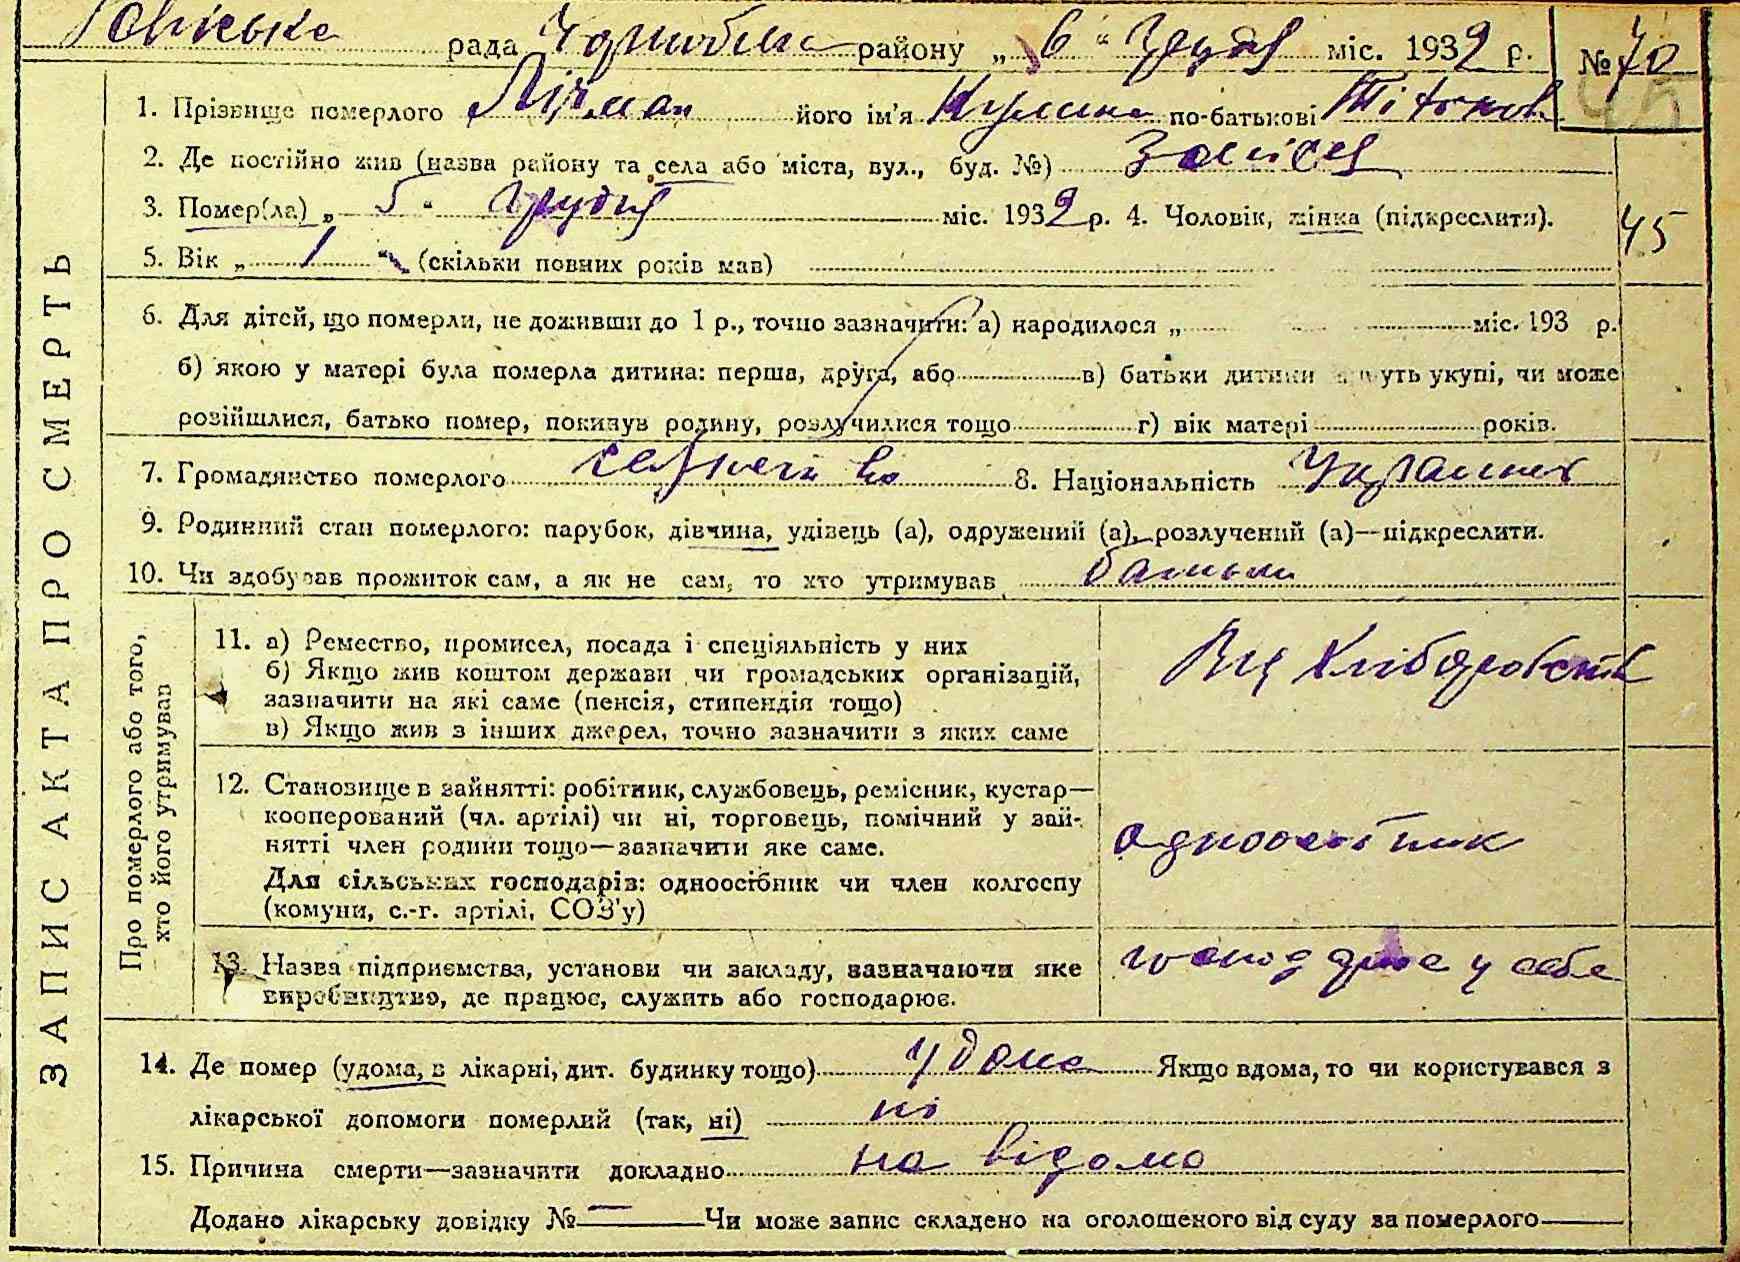 рада Чорнобильс району „ 6 “ Грудня міс. 1932 р. № 70
1. Прізвище померлого його ім'я Кулина по-батькові Тітокова
2. Де постійно жив (назва району та села або міста, вул., буд. №) Залісся
3. Помер(ла) „ 5 “ грудня міс. 1932 р. 4. Чоловік, жінка (підкреслити). 45
5. Вік „ 1 “ (скільки повних років мав)
6. Для дітей, що померли, не доживши до 1 р., точно зазначити: а) народилося „ міс. 193 р.
б) якою у матері була померла дитина: перша, друга, або в) батьки дитини живуть укупі, чи може
розійшлися, батько помер, покинув родину, розлучилися тощо г) вік матері років.
7. Громадянство померлого 8. Національність Украинка
9. Родинний стан померлого: парубок, дівчина, удівець (а), одружений (а), розлучений (а)—підкреслити.
10. Чи здобував прожиток сам, а як не сам, то хто утримував батьки
ЗАПИС АКТА ПРО СМЕРТЬ
Про померлого або того, хто його утримував
11. а) Ремество, промисел, посада і спеціяльність у них
б) Якщо жив коштом держави чи громадських організацій,
зазначити на які саме (пенсія, стипендія тощо)
в) Якщо жив з інших джерел, точно зазначити з яких саме
Від Хліборобств
12. Становище в зайнятті: робітник, службовець, ремісник, кустар—
кооперований (чл. артілі) чи ні, торговець, помічний у зай-
нятті член родини тощо—зазначити яке саме.
Для сільських господарів: одноосібник чи член колгоспу
(комуни, с.-г. артілі, СОЗ'у)
одноосібник
13. Назва підприємства, установи чи закладу, зазначаючи яке
виробництво, де працює, служить або господарює.
господарює у себе
14. Де помер (удома, в лікарні, дит. будинку тощо) удома Якщо вдома, то чи користувався з
лікарської допомоги померлий (так, ні) ні
15. Причина смерти—зазначити докладно на відомо
Додано лікарську довідку № — Чи може запис складено на оголошеного від суду за померлого